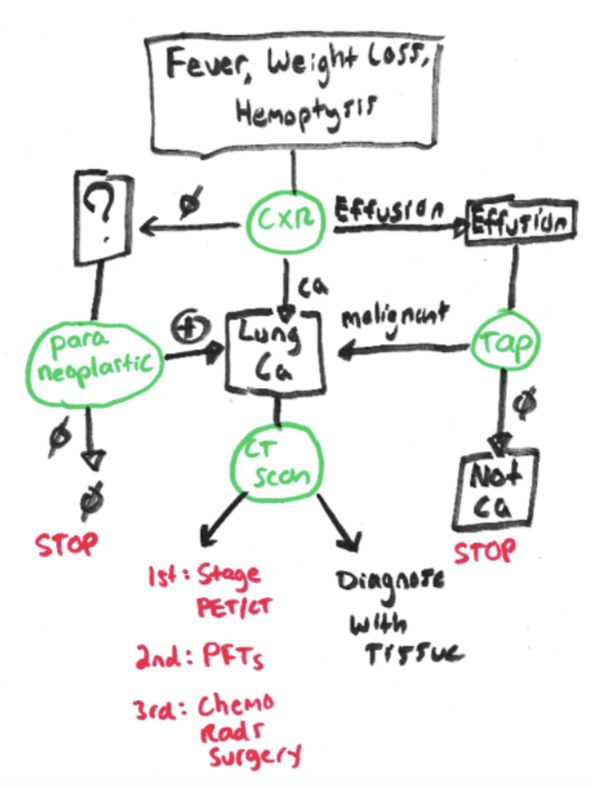 Fever, Weight Loss,
Hemoptysis
?
Ø
CXR
Effusion
Effusion
ca
para
neoplastic
+
Lung
Ca
malignant
Tap
Ø
Ø
Ø
STOP
CT
Scan
Not
Ca
STOP
1st: Stage
PET/CT
2nd: PFTs
3rd: Chemo
Rads
Surgery
Diagnose
with
Tissue